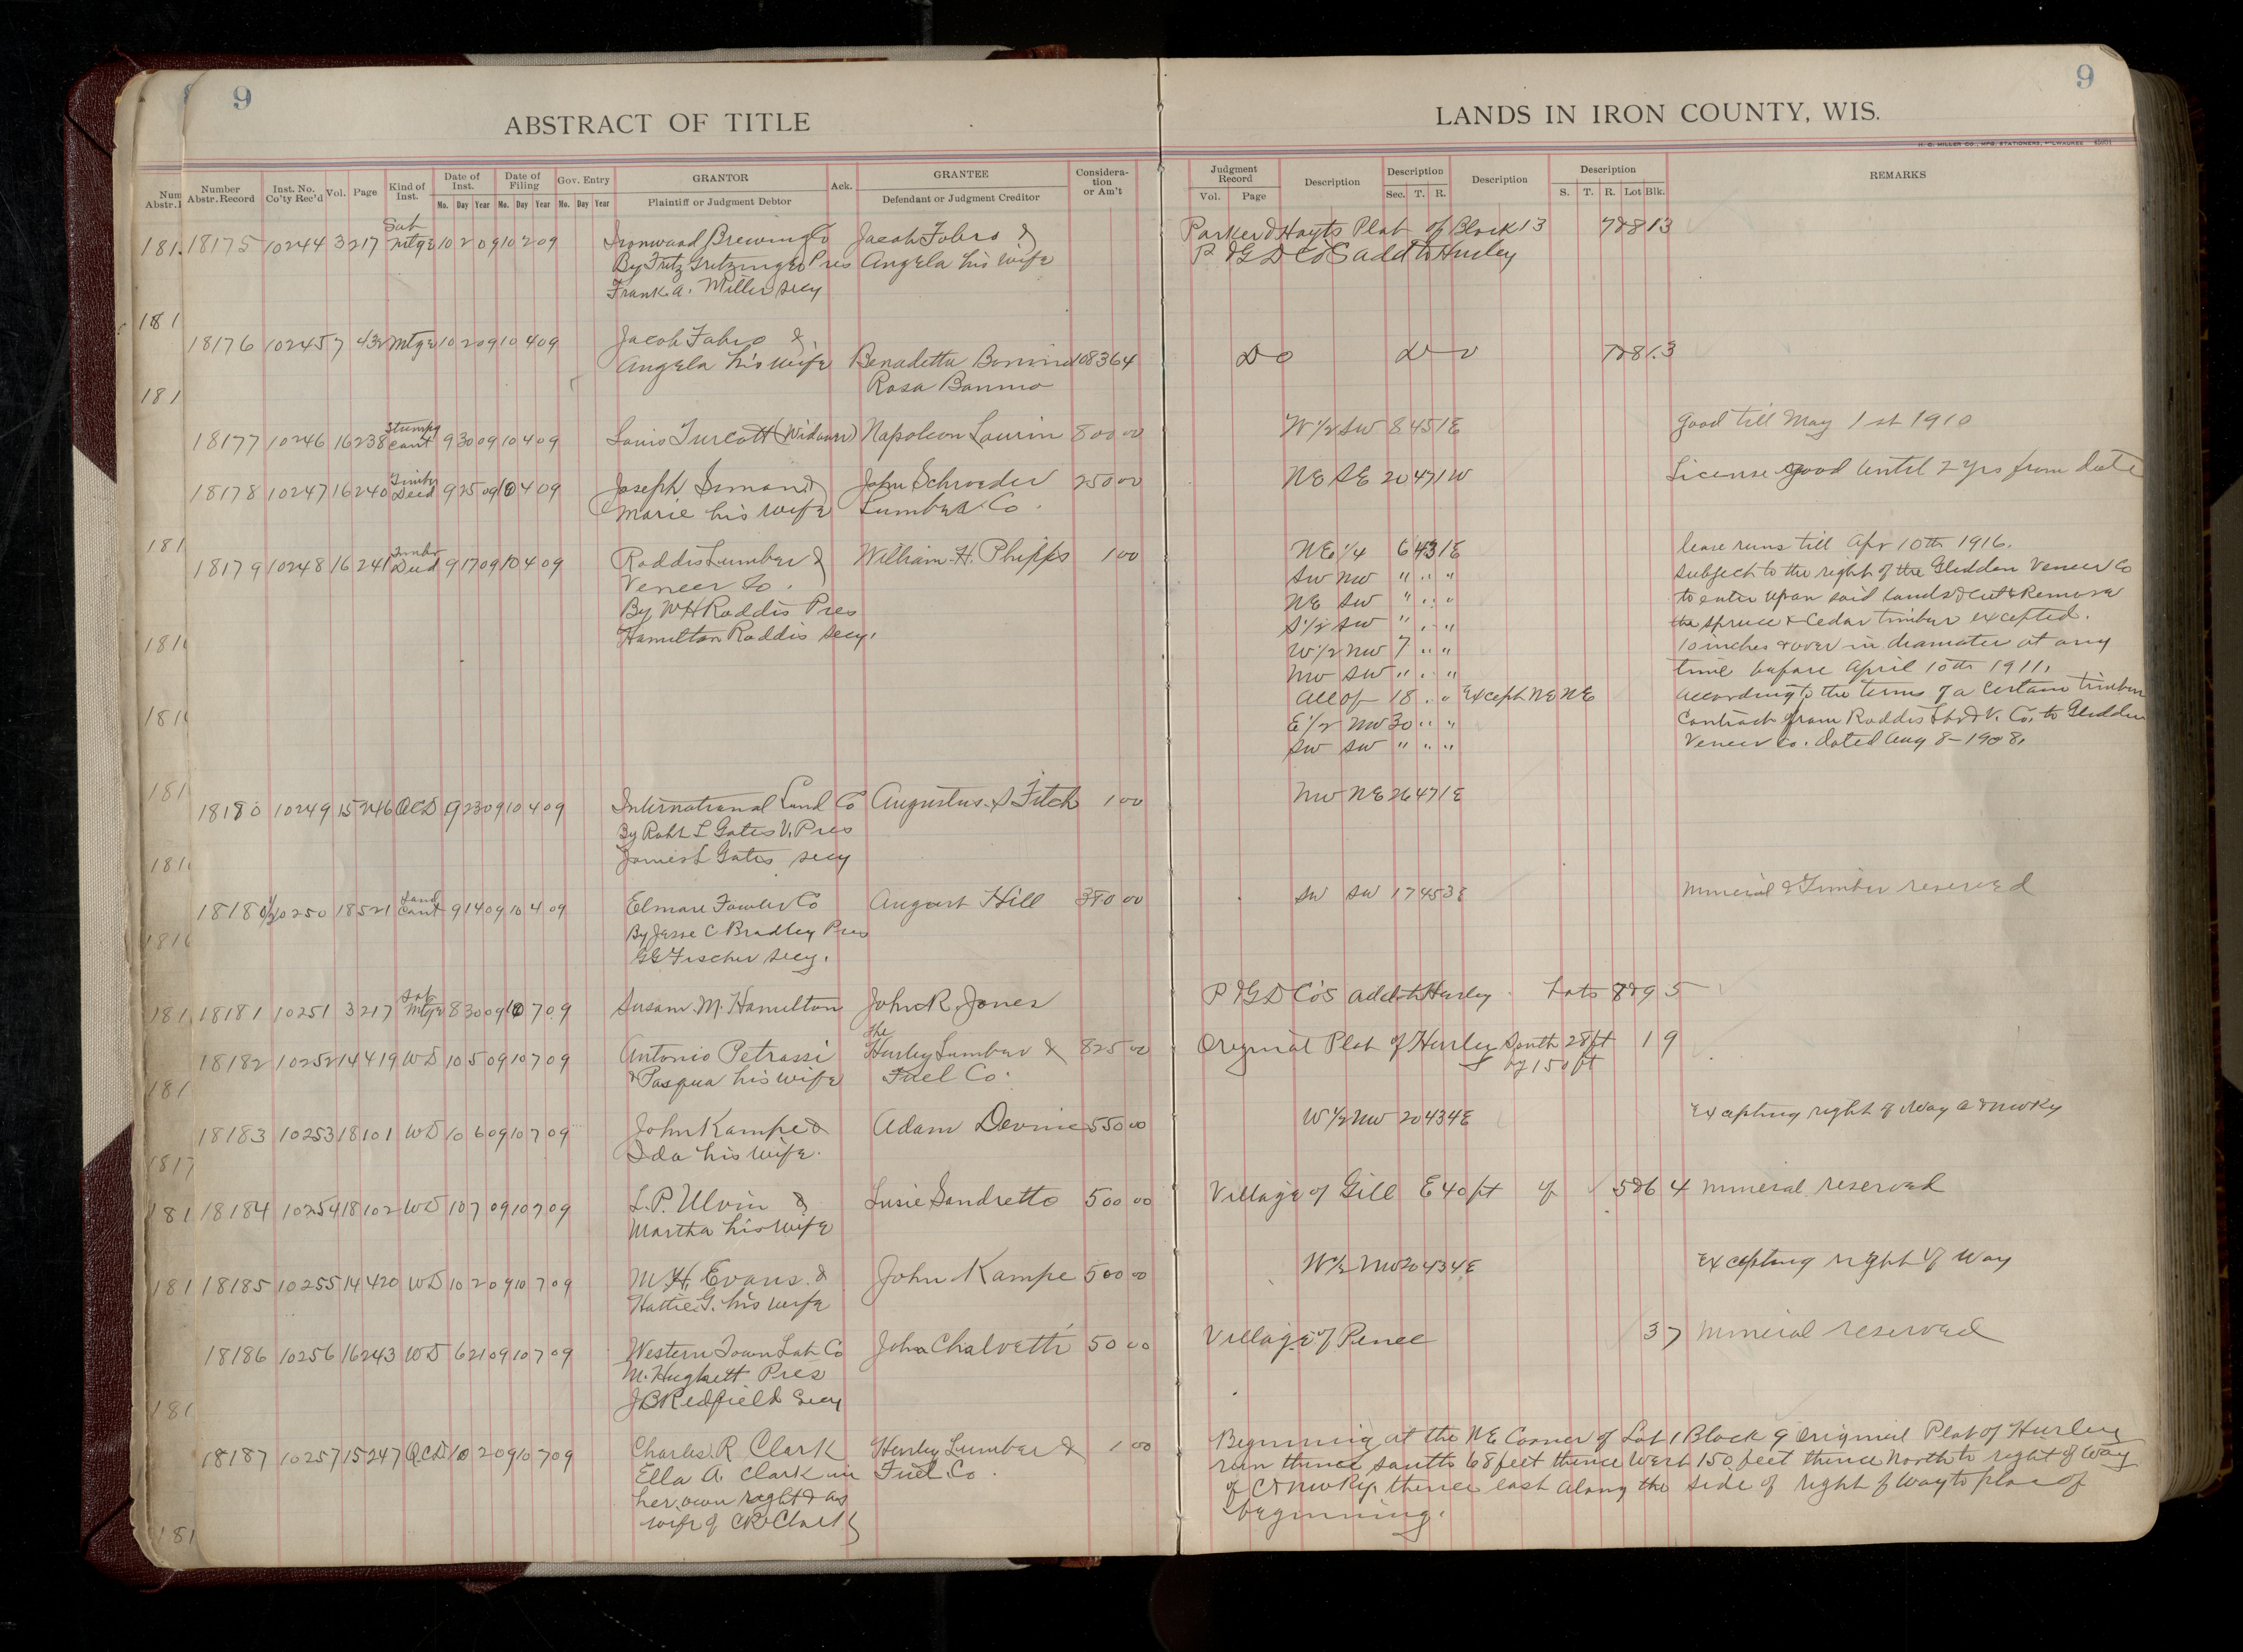 9
ABSTRACT OF TITLE
LANDS IN IRON COUNTY, WIS.
9
H. C. MILLER CO., MFG. STATIONERS, MILWAUKEE
Number Abstr. Record Inst. No. Co'ty Rec'd Vol. Page Kind of Inst. Date of Inst. Date of Filing Gov. Entry GRANTOR Ack. GRANTEE Considera-tion or Am't Judgment Record Description Description Description Description REMARKS
Mo. Day Year Mo. Day Year Mo. Day Year Plaintiff or Judgment Debtor Defendant or Judgment Creditor Vol. Page Sec. T. R. S. T. R. Lot Blk.
Sat
18175 10244 3 217 Mtge 10 2 09 10 2 09 Ironwood Brewing Co Jacob Fabro & Parker & Hayts Plat of Block 13 7&8 13
By Fritz Gretzinger Pres Angela his wife P & G D Co's add to Hurley
Frank A. Miller Secy
18176 10245 7 432 Mtge 10 2 09 10 4 09 Jacob Fabro & Do Do 7&8 13
Angela his wife Benadetta 1083 64
Rosa
Stumpg
18177 10246 16 238 Cont 9 30 09 10 4 09 Louis Turcott (Widower) Napoleon Laurin 800 00 W 1/2 SW 8 45 1E Good till May 1st 1910
Timber
18178 10247 16 240 Deed 9 25 09 10 4 09 Joseph Simon & John Schroeder 250 00 NE SE 20 47 1W License good until 2 yrs from date
Marie his wife Lumber Co.
Timber
18179 10248 16 241 Deed 9 17 09 10 4 09 Roddis Lumber & William H. Phipps 1 00 NE 1/4 6 43 1E lease runs till Apr 10th 1916.
Veneer Co. SW NW " " " subject to the right of the Glidden Veneer Co
By WH Roddis Pres NE SW " " " to enter upon said lands & cut & Remove
Hamilton Roddis Secy. S 1/2 SW " " " the spruce & Cedar timber excepted.
W 1/2 NW 7 " " 10 inches & over in diamater at any
NW SW " " " time before April 10th 1911.
All of 18 " " Except NE NE according to the terms of a certain timber
E 1/2 NW 30 " " Contract from Roddis Lbr & V. Co. to Glidden
SW SW " " " Veneer Co. dated Aug 8-1908.
18180 10249 15 246 QCD 9 23 09 10 4 09 International Land Co Augustus S Fitch 1 00 NW NE 26 47 1E
By Robt L Gates V. Pres
James L Gates Secy
Land
18180 1/2 10250 18 521 Cont 9 14 09 10 4 09 Elmore Fowler Co August Hill 380 00 SW SW 17 45 3E Mineral & Timber reserved
By Jesse C Bradley Pres
GG Fischer Secy.
Sat
18181 10251 3 217 Mtge 8 30 09 10 7 09 Susan M. Hamilton John R. Jones P & G D Co's add to Hurley Lots 8&9 5
18182 10252 14 419 WD 10 5 09 10 7 09 Antonio Petrassi The Hurley Lumber & 825 00 Original Plat of Hurley South 28 ft 1 9
& Pasqua his wife Fuel Co. by 150 ft
18183 10253 18 101 WD 10 6 09 10 7 09 John Kampe & Adam Devine 550 00 W 1/2 NW 20 43 4E Excepting right of way C & NW Ry
Ida his wife.
18184 10254 18 102 WD 10 7 09 10 7 09 L.P. Ulvin & Lusie Sandretto 500 00 Village of Gill E 40 ft of 5&6 4 Mineral reserved
Martha his wife
18185 10255 14 420 WD 10 2 09 10 7 09 M.H. Evans & John Kampe 500 00 W 1/2 NW 20 43 4E Excepting right of way
Hattie G. his wife
18186 10256 16 243 WD 6 21 09 10 7 09 Western Town Lot Co John Chalvetti 50 00 Village of Pence 37 Mineral reserved
M. Hughitt Pres
JB Redfield Secy
18187 10257 15 247 QCD 10 2 09 10 7 09 Charles R Clark Hurley Lumber & 1 00 Beginning at the NE Corner of Lot 1 Block 9 Original Plat of Hurley
Ella A. Clark in Fuel Co. run thence south 68 feet thence West 150 feet thence North to right of way
her own right & as of C & NW Ry. thence east along the side of right of way to place of
wife of CR Clark beginning.